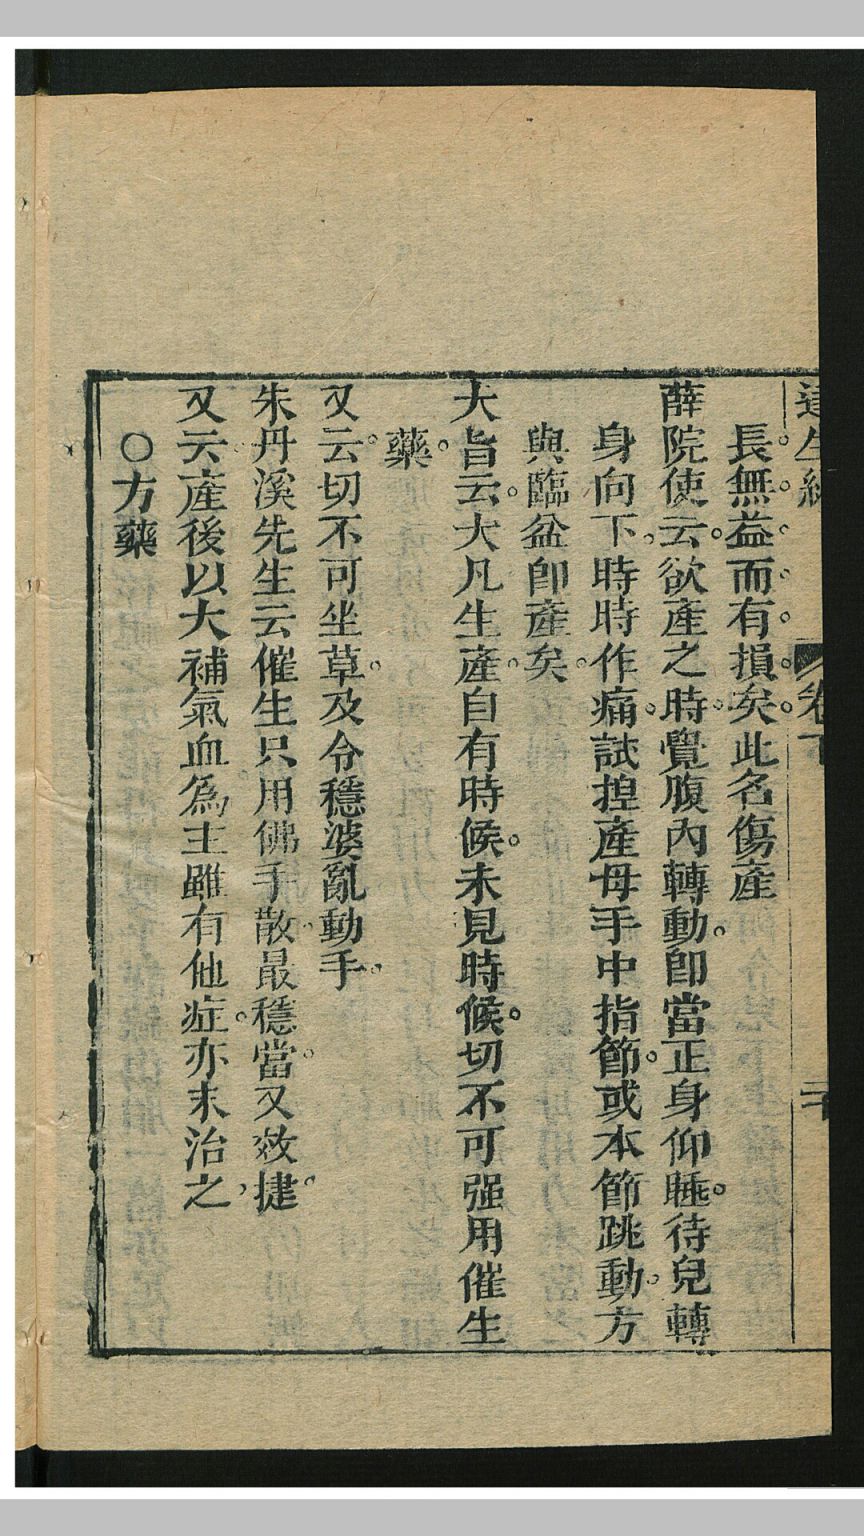 達生編
卷下
二十
長。無。益。而。有。損。矣。此名傷產
薛院使云。欲產之時。覺腹內轉動。卽當正身仰睡。待兒轉
身向下。時時作痛。試捏產母手中指節。或本節跳動。方
與臨盆卽產矣。
大旨云。大凡生產。自有時候。未見時候。切不可强用催生
藥。
又云。切不可坐草。及令穩婆亂動手。
朱丹溪先生云。催生只用佛手散。最穩當。又效捷。
又云。產後以大補氣血為主。雖有他症。亦末治之。
〇方藥